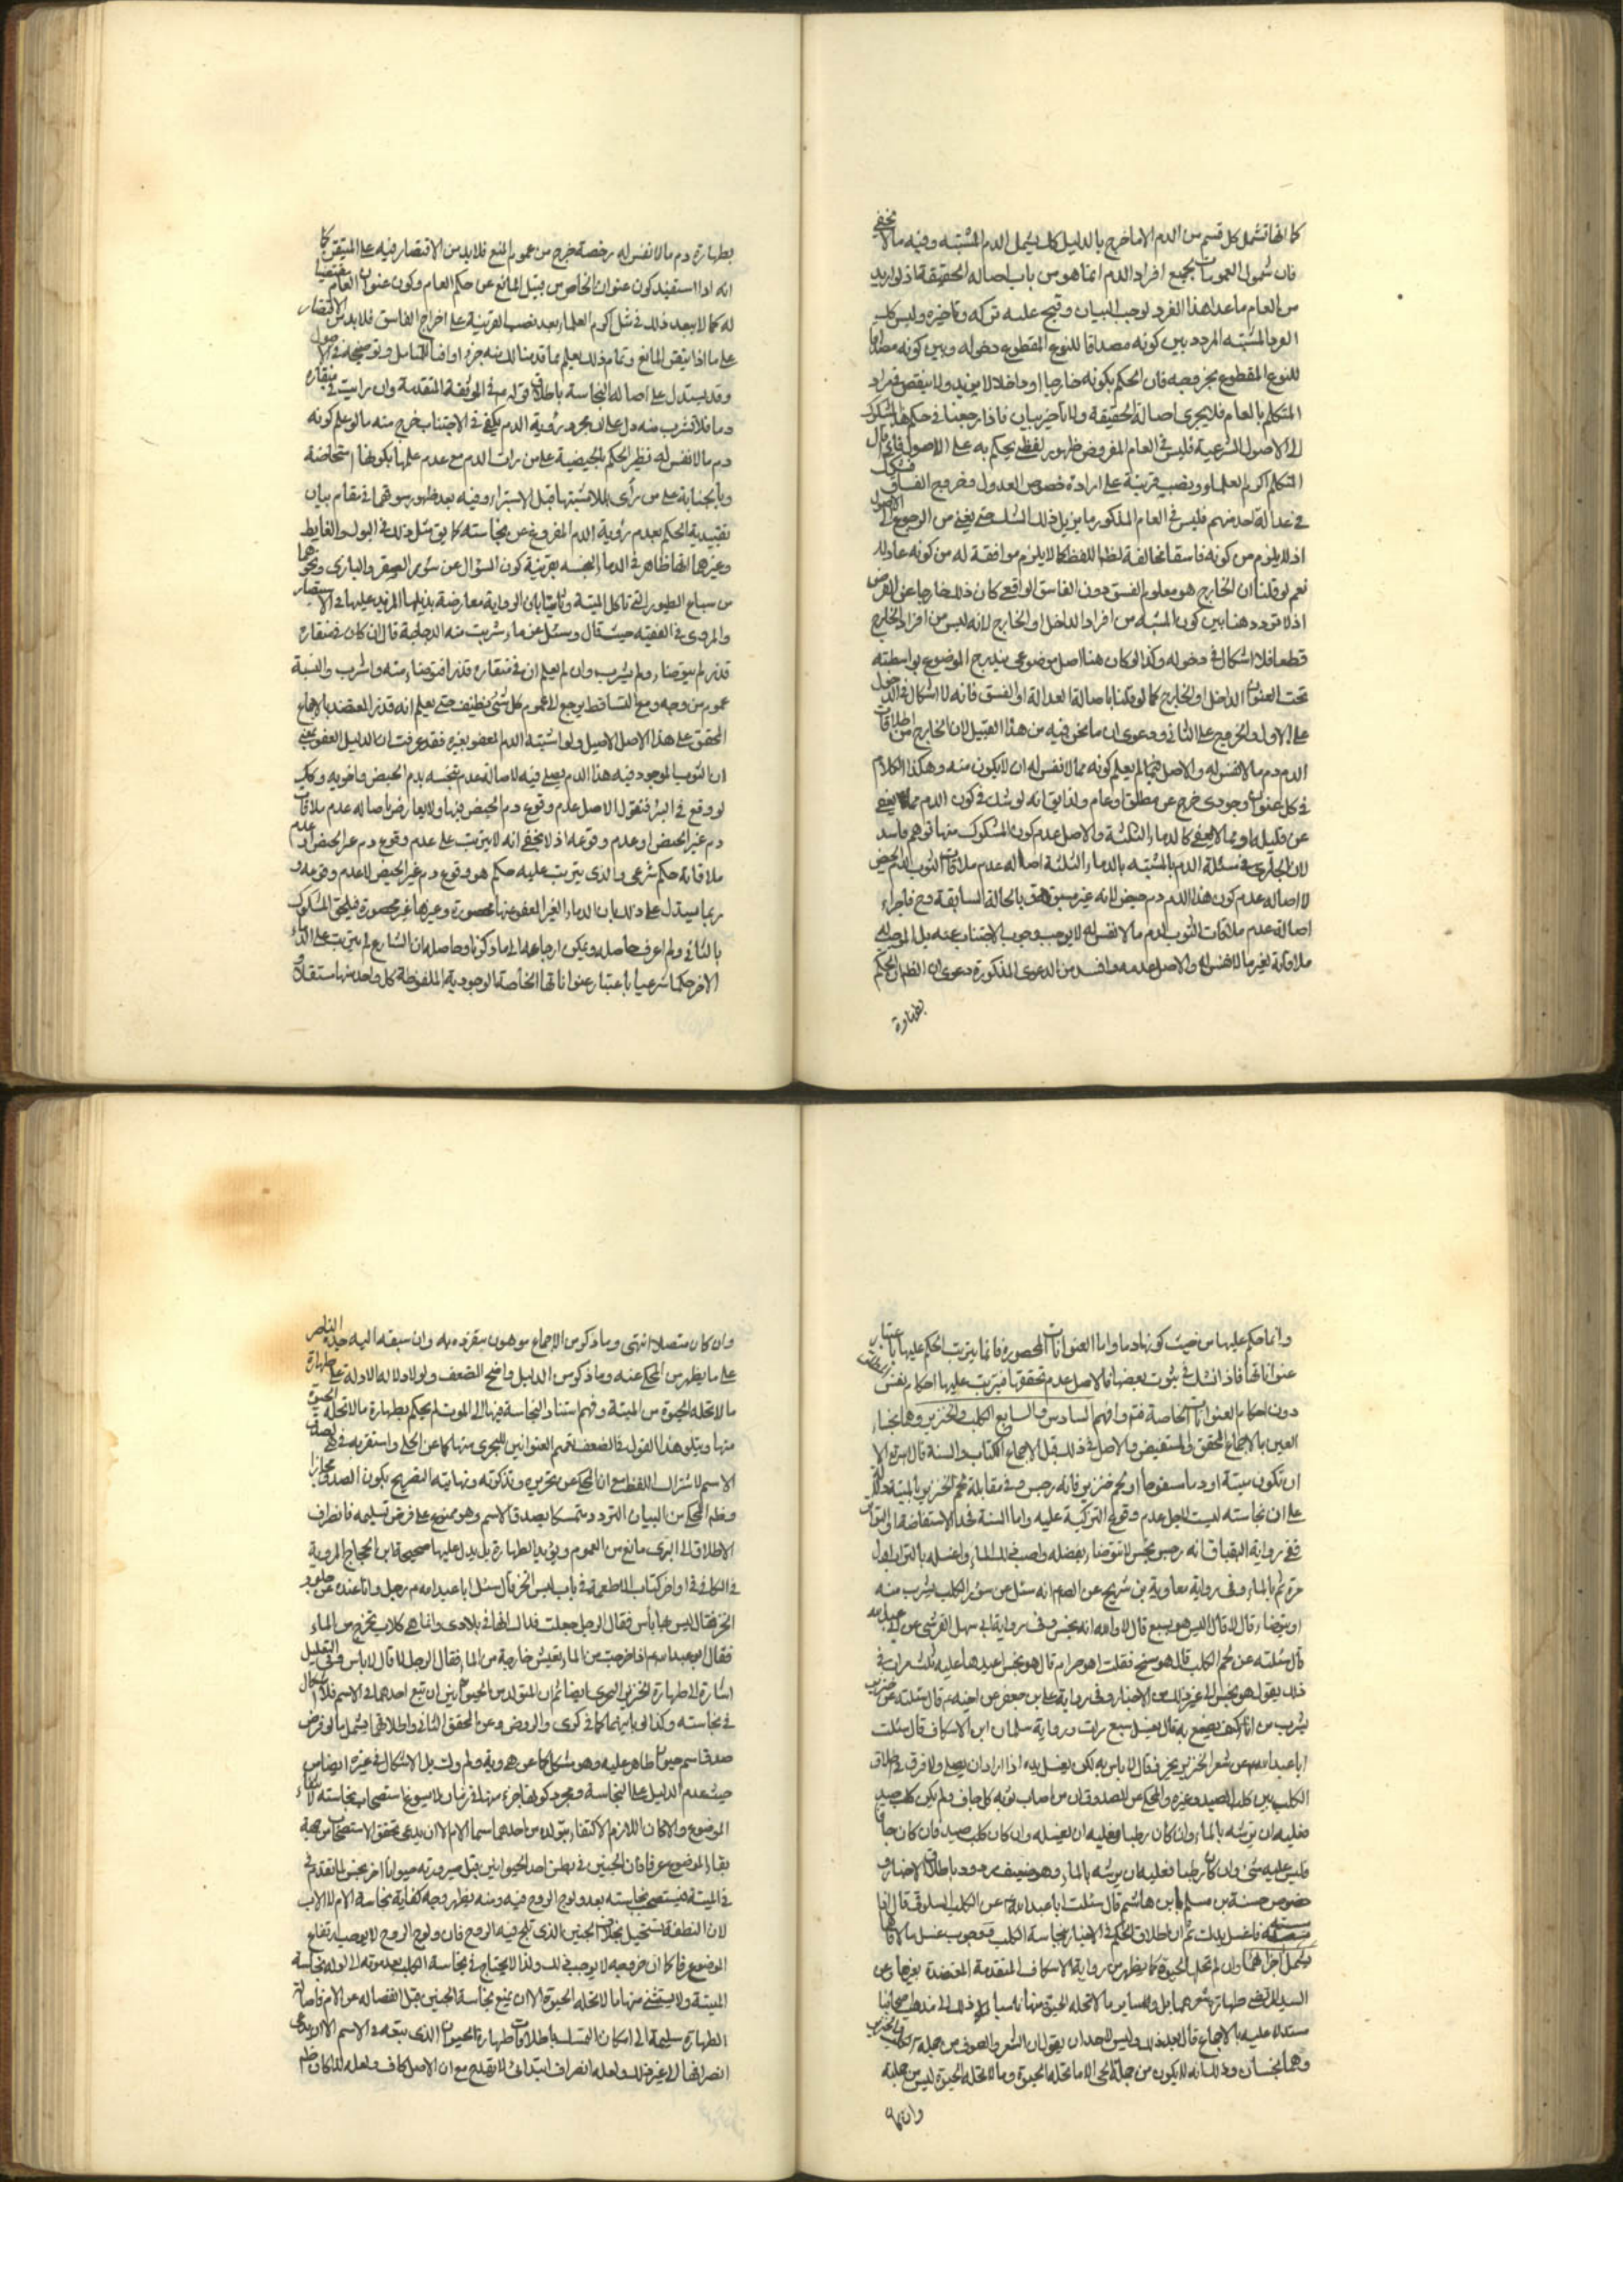 كما انها تشمل كل قسم من الدم الا ما خرج بالدليل كك يشمل الدم المشتبه وفيه ما لا يخفى
فان شمول العمومات لجميع افراد الدم انما هو من باب اصالة الحقيقة اذ لو اريد
من العام ما عدا هذا الفرد لوجب البيان وقبح عليه تركه وتاخيره وليس كك
الفرد المشتبه المردد بين كونه مصداقا للنوع المقطوع دخوله وبين كونه مصداقا
للنوع المقطوع بخروجه فان الحكم بكونه خارجا او داخلا لا يزيد ولا ينقص في مراد
المتكلم بالعام فلا يجرى اصالة الحقيقة ولا تاخير بيان فاذا رجعنا في حكم هذا المشكوك
الى الاصول الشرعية فليس في العام المفروض ظهور لفظى يحكم به على الاصول فاذا قال
المتكلم اكرم العلماء ونصب قرينة على ارادة خصوص العدول وخروج الفساق فشكك
في عدالة احد منهم فليس في العام المذكور ما يزيل ذلك الشك حتى يغنى من الرجوع الى الاصول
اذ لا يلزم من كونه فاسقا مخالفة لظ اللفظ كما لا يلزم موافقة له من كونه عادلا
نعم لو قلنا ان الخارج هو معلوم الفسق دون الفاسق الواقعى كان ذلك خارجا عن الفرض
اذ لا تردد هنا بين كون المشتبه من افراد الداخل او الخارج لانه ليس من افراد الخارج
قطعا فلا اشكال في دخوله وكذا لو كان هنا اصل موضوعى يندرج الموضوع بواسطته
تحت العنوان الداخل او الخارج كما لو قلنا باصالة العدالة او الفسق فانه لا اشكال في الدخول
على الاول والخروج على الثانى ودعوى ان ما نحن فيه من هذا القبيل لان الخارج من اطلاقات
الدم دم ما لا نفس له والاصل فيما لم يعلم كونه مما لا نفس له ان لا يكون منه وهكذا الكلام
في كل عنوان وجودى خرج عن مطلق او عام ولذا يق انه لو شك في كون الدم مما يعفى
عن قليله او مما لا يعفى كالدماء الثلثة والاصل عدم كون المشكوك منها توهم فاسد
لان الجارى في مسئلة الدم المشتبه بالدماء الثلثة اصالة عدم ملاقات الثوب لدم الحيض
لا اصالة عدم كون هذا الدم دم حيض لانه غير مسبوق بالحالة السابقة وح فاجراء
اصالة عدم ملاقات الثوب لدم ما لا نفس له لا يوجب وجوب الاجتناب عنه بل الموجب له
ملاقاته لغير ما لا نفس له والاصل عدمه وافسد من الدعوى المذكورة دعوى ان الظ ان الحكم
بطهارة
بطهارة دم ما لا نفس له رخصة خرج من عموم المنع فلا بد من الاقتصار فيه على المتيقن كما
انه اذا استفيد كون عنوان الخاص من قبيل المانع عن حكم العام وكون عنوان العام مقتضيا
له كما لا يبعد ذلك في مثل اكرم العلماء بعد نصب القرينة على اخراج الفاسق فلا بد من الاقتصار
على ما اذا تيقن المانع وتمام ذلك يعلم مما قدمنا لك منه جزءا وافيا للتامل وتوضيحه في الاصول
وقد يستدل على اصالة النجاسة باطلاق قوله في الموثقة المتقدمة وان رايت في منقاره
دما فلا تشرب منه دل على ان مجرد رؤية الدم يكفى في الاجتناب خرج منه ما لو علم كونه
دم ما لا نفس له نظير الحكم بالحيضية على من رات الدم مع عدم علمها بكونها مستحاضة
وبالجنابة على من رأى البلل المشتبه قبل الاستبراء وفيه بعد ظهور سوقها في مقام بيان
تقييدية الحكم بعدم رؤية الدم المفروغ عن نجاسته كما يق مثل ذلك في البول والغايط
وغيرهما انها ظاهر في الدماء النجسه بقرينة كون السؤال عن سؤر الصقر والبازى ونحوهما
من سباع الطيور التى تاكل الميتة وثالثا بان الرواية معارضة بذيلها المزيد عليها في الاستبصار
والمروى في الفقيه حيث قال وسئل عن ماء شربت منه الدجاجة قال ان كان في منقارها
قذر لم يتوضاء ولم يشرب وان لم يعلم ان في منقارها قذرا فتوضاء منه واشرب والنسبة
عموم من وجه ومع التساقط يرجع الى عموم كل شئ نظيف حتى يعلم انه قذر المعتضد بالاجماع
المحقق على هذا الاصل الاصيل ولو اشتبه الدم المعفو بغيره فقد عرفت ان الدليل العفو بمعنى
ان الثوب الموجود فيه هذا الدم يصلى فيه لاصالة عدم تنجسه بدم الحيض واخويه وكك
لو وقع في البئر فنقول الاصل عدم وقوع دم الحيض فيها ولا يعارض باصالة عدم ملاقات
دم غير الحيض او عدم وقوعه اذ لا يخفى انه لا يترتب على عدم وقوع دم غير الحيض او عدم
ملاقاته حكم شرعى والذى يترتب عليه حكم هو وقوع دم غير الحيض لا عدم وقوعه و
ربما يستدل على ذلك بان الدماء الغير المعفو عنها محصورة وغيرها غير محصورة فيلحق المشكوك
بالثانى ولم اعرف حاصله ويمكن ارجاعه الى ما ذكرنا وحاصله ان الشارع لم يترتب على الدماء
الاخر حكما شرعيا باعتبار عنواناتها الخاصة الوجودية الملفوظة كل واحد منها مستقلا و
وانما حكم عليها من حيث كونها دما واما العنوانات المحصورة فانما يترتب الحكم عليها باعتبار
عنواناتها فاذا شك في ثبوت بعضها فالاصل عدم تحققها فيترتب عليها احكام نفس
دون احكام العنوانات الخاصة فت وافهم السادس والسابع الكلب والخنزير وهما نجسا
العين بالاجماع المحقق والمستفيض والاصل في ذلك قبل الاجماع الكتاب والسنة قال الا
ان تكون ميتة او دما مسفوحا او لحم خنزير فانه رجس وفي مقابلة لحم الخنزير بالميتة دلالة
على ان نجاسته ليست لاجل عدم وقوع التزكية عليه واما السنة فحد الاستفاضة او التواتر
ففى رواية البقباق انه رجس نجس لا تتوضاء بفضله واصبب ذلك الماء واغسله بالتراب اول
مرة ثم بالماء وفي رواية معاوية بن شريح عن الصم انه سئل عن سؤر الكلب يشرب منه
او يتوضاء قال لا قال اليس هو سبع قال لا والله انه نجس وفي رواية ابى سهل القرشى عن ابى عبد الله
قال سئلته عن لحم الكلب قال هو مسخ فقلت اهو حرام قال هو نجس اعيدها عليه ثلث مرات في
ذلك يقول هو نجس الى غير ذلك من الاخبار وفي رواية على بن جعفر عن اخيه قال سئلته عن خنزير
يشرب من اناء كيف يصنع به قال يغسل سبع مرات ورواية سلمان ابن الاسكاف قال سئلت
ابا عبد الله عن شعر الخنزير يخرز قال لا باس به لكن يغسل يده اذا اراد ان يصلى ولا فرق في اطلاق
الكلب بين كلب الصيد وغيره والمحكى عن الصدوق ان من اصاب ثوبه كلب جاف ولم يكن كلب صيد
فعليه ان يرشه بالماء وان كان رطبا فعليه ان يغسله وان كان كلب صيد فان كان جافا
فليس عليه شئ وان كان رطبا فعليه ان يرشه بالماء وهو ضعيف مردود باطلاق الاخبار و
خصوص حسنة بن مسلم بابن هاشم قال سئلت ابا عبد الله عن الكلب السلوقى قال اذا
مسسته فاغسل يدك ثم ان اطلاق الحكم في الاخبار بنجاسة الكلب فوجوب غسل ما لاقاها
يشمل اجزائهما وان لم تحلها الحيوة كما يظهر من رواية الاسكاف المتقدمة المعتضدة بغيرها وعن
السيد المرتضى طهارة شعرهما بل وساير ما لا تحله الحيوة منها ناسبا ذلك الى مذهب اصحابنا
مستدلا عليه بالاجماع قال بعد ذلك وليس لاحد ان يقول ان الشعر والصوف من جملة الكلب والخنزير
وهما نجسان وذلك انه لا يكون من جملة الحى الا ما تحله الحيوة وما لا تحله الحيوة ليس من جملته
وان كان
وان كان متصلا انتهى وما ذكر من الاجماع موهون بتفرده به وان سبقه اليه جده الناصر
على ما يظهر من المحكى عنه وما ذكر من الدليل واضح الضعف ولو لا دلالة الادلة على طهارة
ما لا تحله الحيوة من الميتة وفهم استناد النجاسة فيها الى الموت لم يحكم بطهارة ما لا تحله الحيوة
منها ويتلو هذا القول في الضعف تعميم العنوانين للبحرى منهما كما عن الحلى واستقربه في هى لصدق
الاسم لاشتراك اللفظ مع ان المحكى عن تحريره وتذكرته ونهايته التصريح بكون الصدق مجازا
وظ المحكى من البيان التردد وتمسكا بصدق الاسم وهو ممنوع على فرض تسليمه فانصراف
الاطلاق الى البرى مانع من العموم ويؤيد الطهارة بل يدل عليها صحيحة ابن الحجاج المروية
في الكافى في اواخر كتاب الاطعمة في باب لبس الخز قال سئل ابا عبد الله رجل وانا عنده عن جلود
الخز فقال ليس بها بأس فقال الرجل جعلت فداك انها في بلادى وانما هى كلاب تخرج من الماء
فقال ابو عبد الله اذا خرجت من الماء تعيش خارجة من الماء فقال الرجل لا قال لا باس وفي التعليل
اشارة الى طهارة الخنزير البحرى ايضا ثم ان المتولد من الحيوانين ان تبع احدهما في الاسم فلا اشكال
في نجاسته وكذا لو باينهما كما في كرى والروض وعن المحقق الثانى واطلاقها يشمل ما لو فرض
صدق اسم حيوان طاهر عليه وهو مشكل كما عن هى وية ولم ولت بل الاشكال في غيره ايضا من
حيث عدم الدليل على النجاسة ومجرد كونها جزء منهما في زمان لا يسوغ استصحاب نجاسته لانتفاء
الموضوع والا كان اللازم الاكتفاء بتولده من احدهما اسما الام الا ان يدعى تحقق الاستصحاب من جهة
بقاء الموضوع عرفا فان الجنين في بطن احد الحيوانين قبل صيرورته حيوانا اخر نجس لما تقدم
في الميتة فيستصحب نجاسته بعد ولوج الروح فيه ومنه يظهر وجه كفاية نجاسة الام لا الاب
لان النطفة تستحيل بخلاف الجنين الذى تلج فيه الروح فان ولوج الروح لا يوجب ارتفاع
الموضوع عرفا كما ان خروجه لا يوجب ذلك ولذا لا يحتاج في نجاسة الكلب بعد موته الى ادلة نجاسة
الميتة ولا يستثنى منها ما لا تحله الحيوة الا ان يمنع نجاسة الجنين قبل انفصاله عن الام فاصالة
الطهارة سليمة الى امكان التمسك باطلاقات طهارة الحيوان الذى يتبعه في الاسم الا ان يدعى
انصرافها الى غير ذلك ولعله انصراف ابتدائى لا يقدح مع ان الاصل كاف ولعله لذا كان ظ